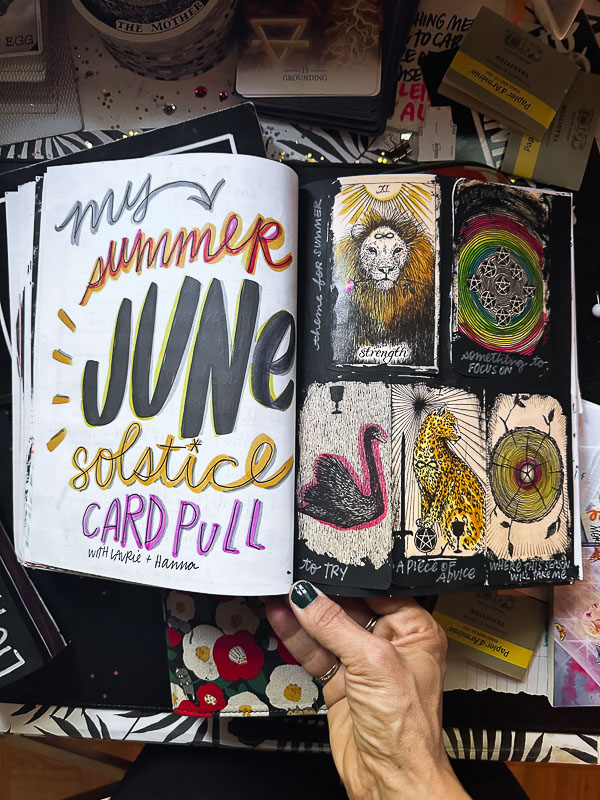 EGG
THE MOTHER
15
GROUNDING
Papier d'Arménie
TRADITION
Papier d'Arménie
TRADITION
my
summer
JUNE
solstice
CARD PULL
WITH LAURIE + Hanna
theme for summer
XI
strength
something to
FOCUS ON
to TRY
A PIECE OF
ADVICE
WHERE THIS SEASON
WILL TAKE ME
Papier d'Arménie
Papier d'Arménie